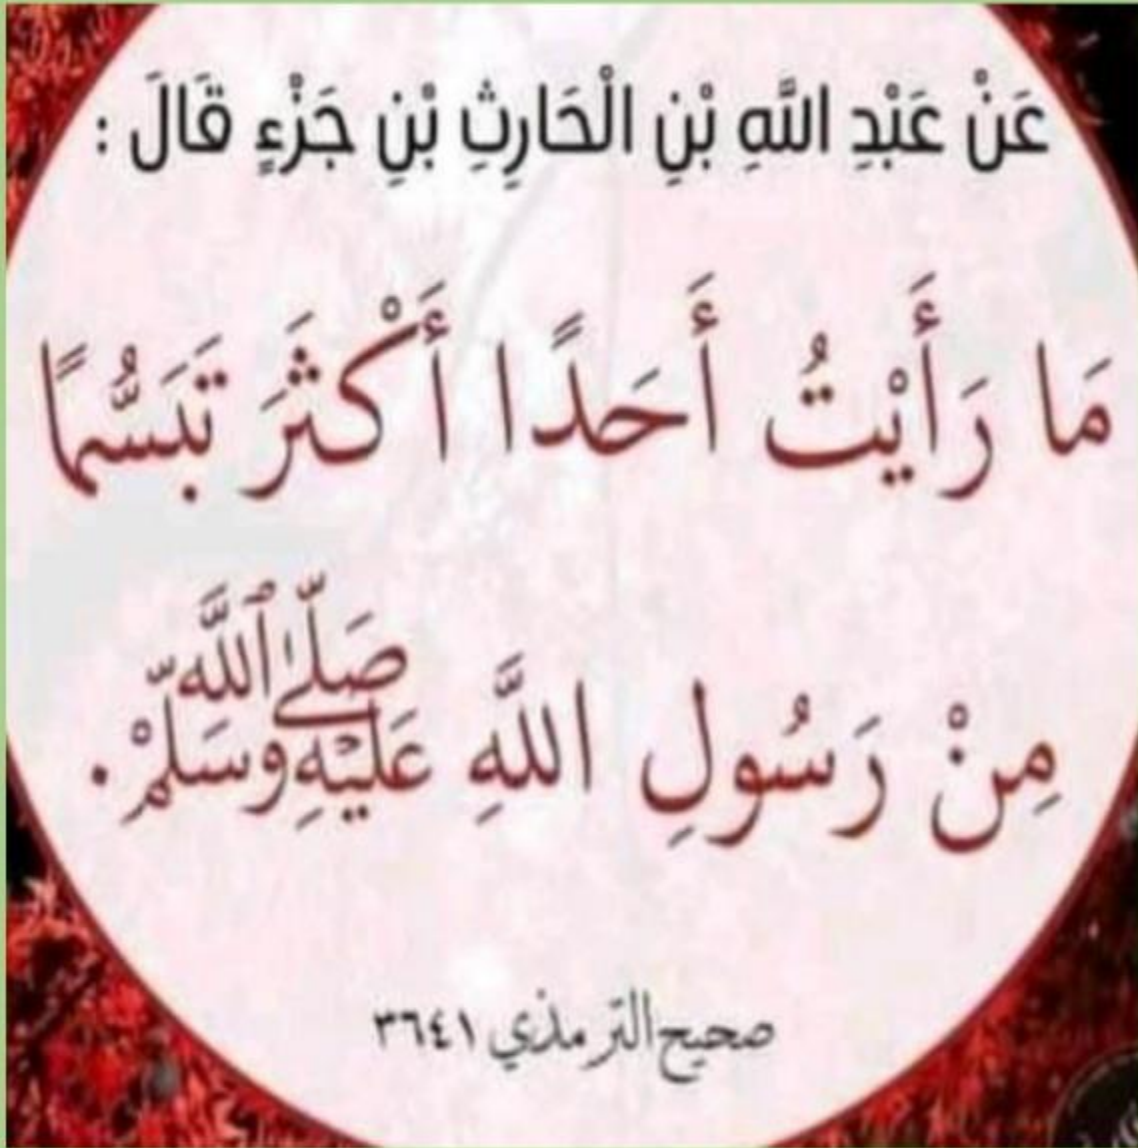 عَنْ عَبْدِ اللَّهِ بْنِ الْحَارِثِ بْنِ جَزْءٍ قَالَ :
مَا رَأَيْتُ أَحَدًا أَكْثَرَ تَبَسُّمًا
مِنْ رَسُولِ اللَّهِ صَلَّى اللَّهُ عَلَيْهِ وَسَلَّمَ.
صحيح الترمذي ٣٦٤١